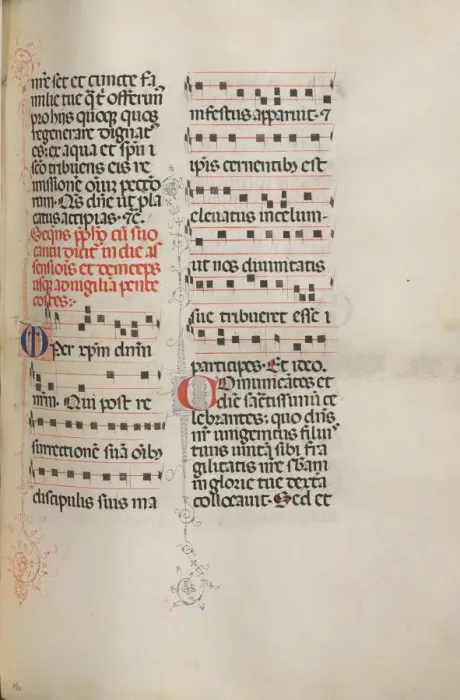 nr̄e set et cuncte fa
milie tue q̄t offerim
pro hijs quoqꝫ quos
regenerare dignat᷒
es: et aqua et sp̄u s
sc̄o tribuens eis re
missionē oīuꝫ pecto
rum. Qs dn̄e ut pla
catus accipias. ⁊c̄.
Seqn̄s p̄ph̄o cū suo
cantu dicit᷒ in die as
sensiōis et deinceps
usqꝫ ad uigiliā pente
costes:.
Per xp̄m dn̄m
nr̄m. Qui post re
surrectionē suā oīb᷒
discipulis suis ma
nifestus apparuit. ⁊
ip̄is cernentib᷒ est
eleuatus in celum.
ut nos diuinitatis
sue tribueret esse
participes. Et ideo.
Comunicātes et
diē sac̄tissimū ce
lebrantes: quo dn̄s
nr̄ unigenitus filiu᷒
tuus unitā sibi fra
gilitatis nr̄e sb̄am
in glorie tue dextā
collocauit. Sed et